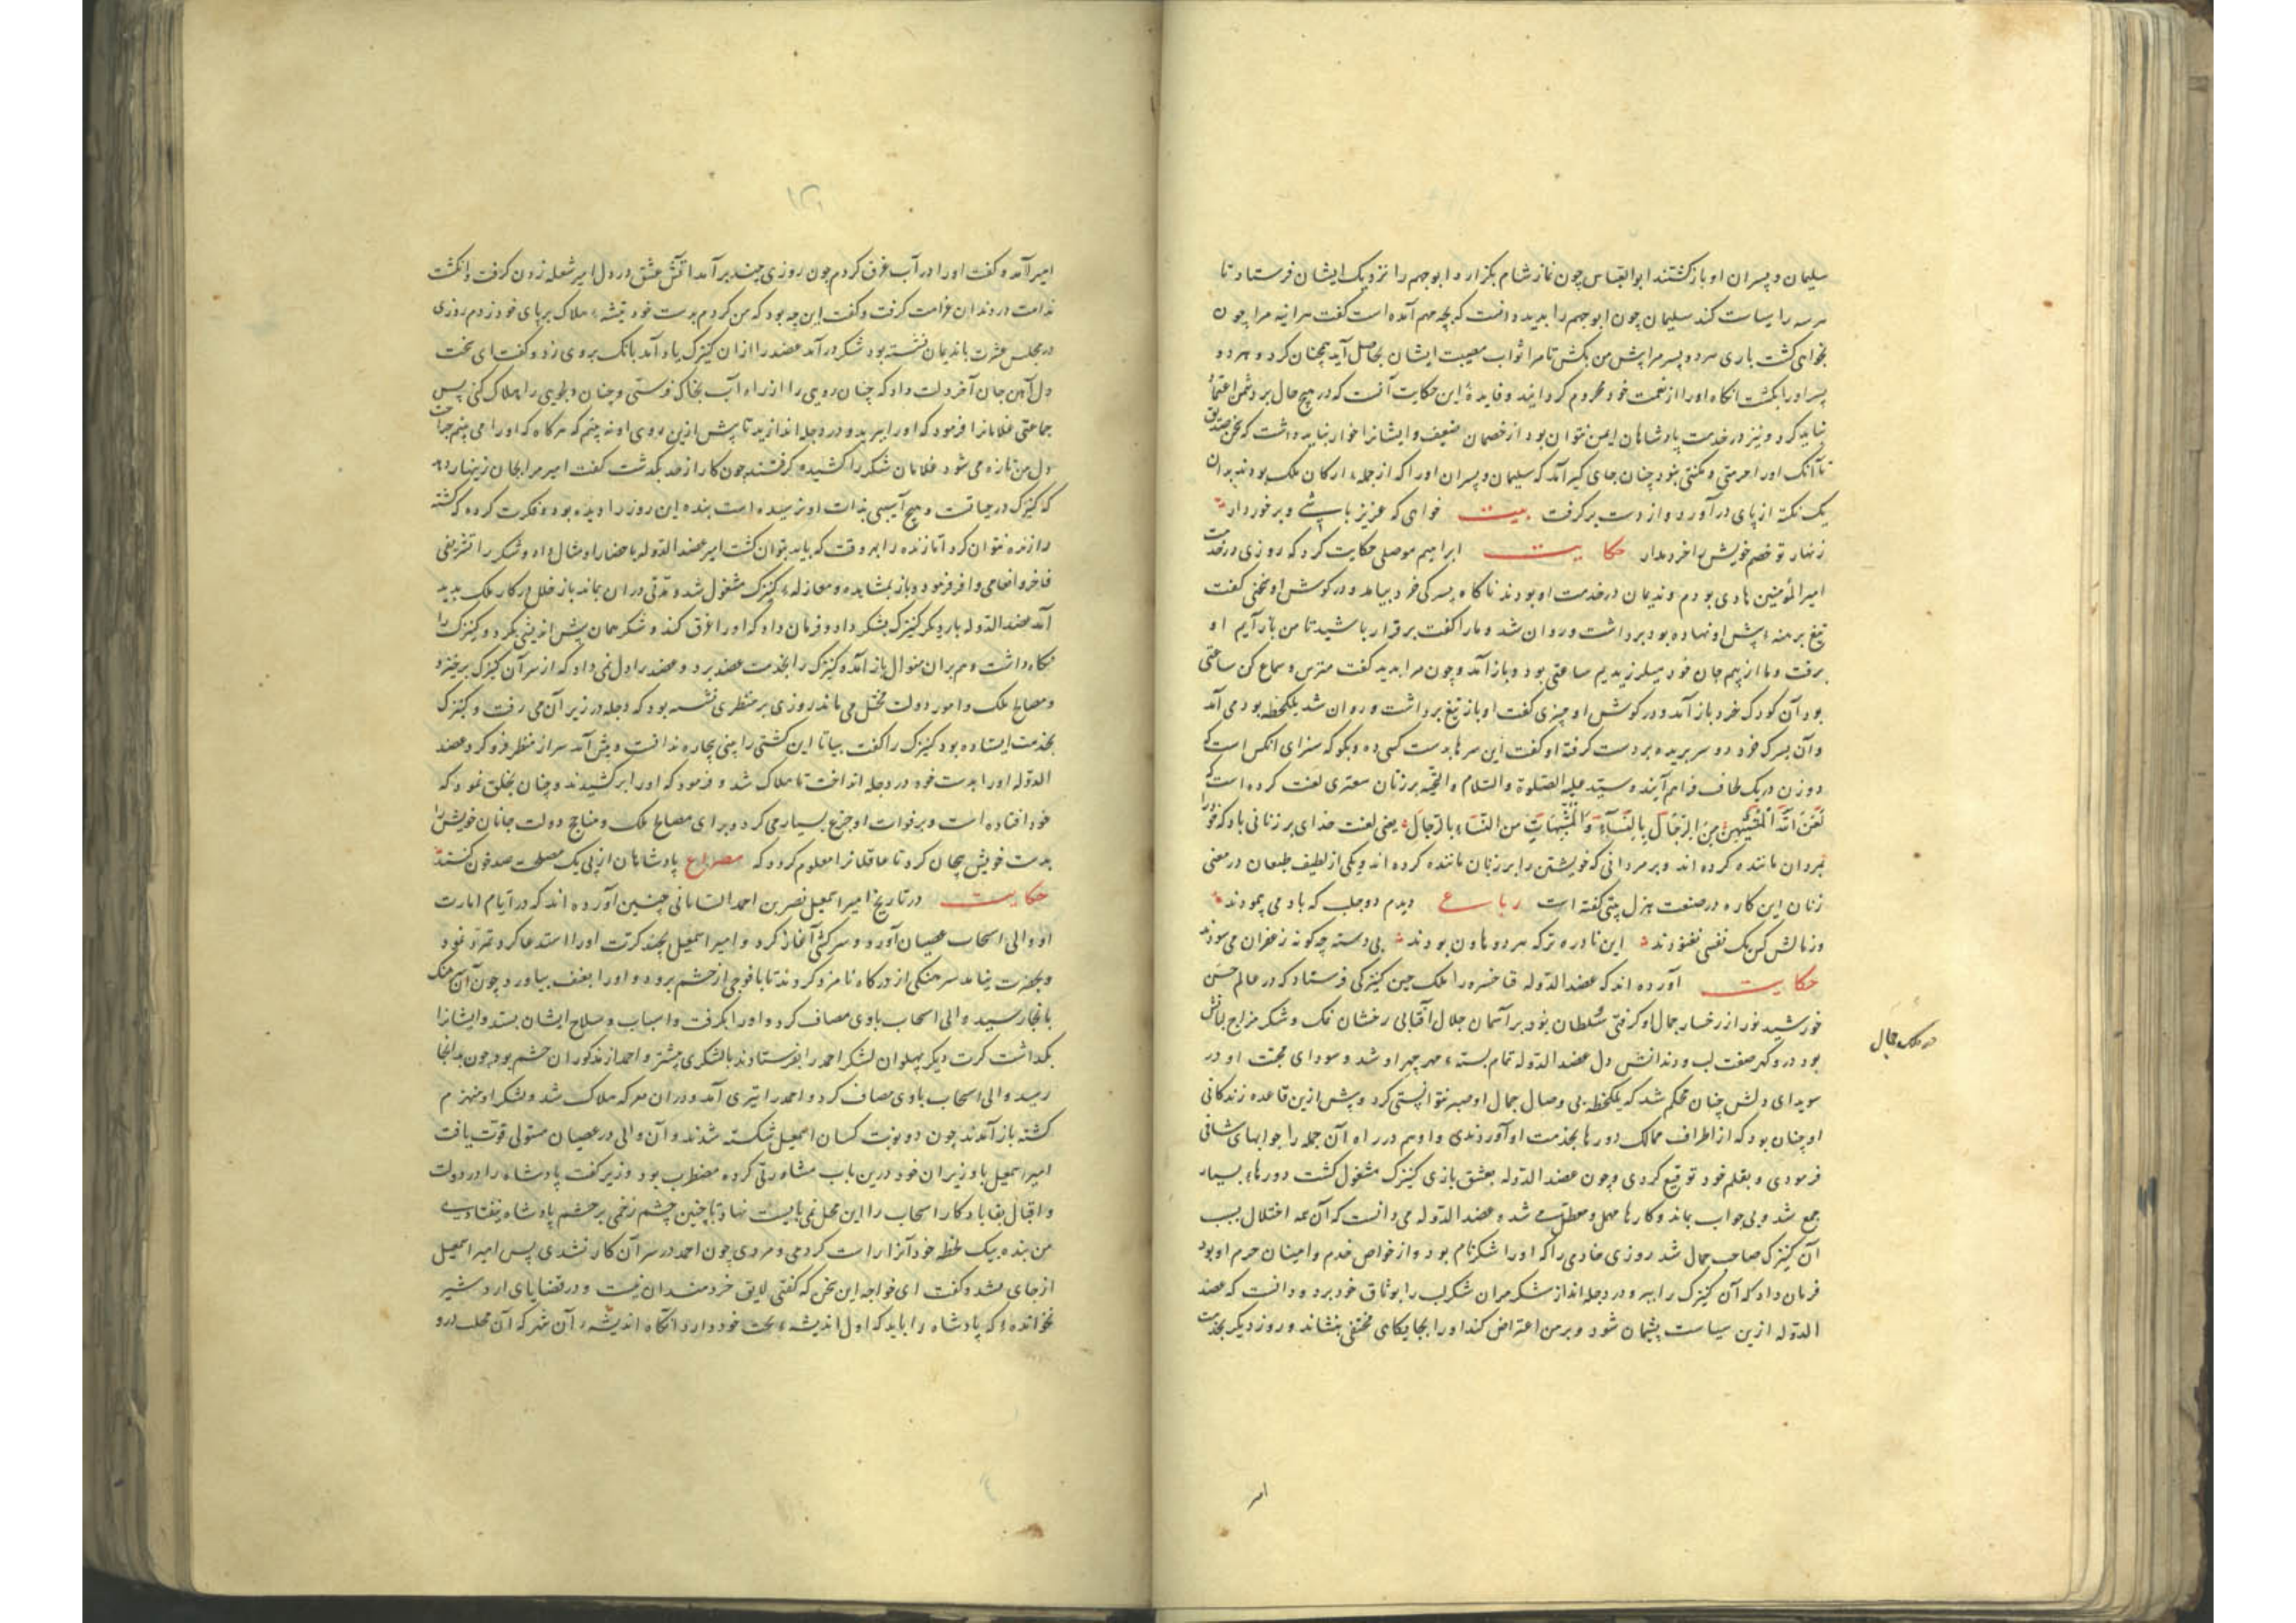 سلیمان و پسران او بازگشتند ابو العباس چون نماز شام بگزارد ابو جهم را نزدیک ایشان فرستاد تا
هر سه را سیاست کند سلیمان چون ابو جهم را بدید دانست که بچه مهم آمده است گفت هر اینه مرا چون
بخواهی کشت باری هر دو پسر مرا پیش من بکش تا مرا ثواب مصیبت ایشان بحاصل آید همچنان کرد و هر دو
پسر او را بکشت انکاه او را از نعمت خود محروم کردانید و فایدهٔ این حکایت آنست که در هیچ حال بر دشمن اعتماد
نباید کرد و نیز در خدمت پادشاهان ایمن نتوان بود از خصمان ضعیف و ایشانرا خوار نباید داشت که سخن
تا آنک او را حرمتی و مکنتی نبود چنان جای گیر آمد که سلیمان و پسران او را که از جملهٔ ارکان ملک بودند بدان
یک نکته از پای درآورد و از دست برگرفت بیت خواهی که عزیز باشی و برخوردار
زنهار تو خصم خویش را خرد مدار حکایت ابراهیم موصلی حکایت کرد که روزی در خدمت
امیر المؤمنین هادی بودم و ندیمان در خدمت او بودند ناکاه پسرکی خرد بیامد و در گوش او سخنی گفت
تیغ برهنه پیش او نهاده بود برداشت و روان شد و ما را گفت برقرار باشید تا من باز آیم او
برفت و ما از بیم جان خود میلرزیدیم ساعتی بود و باز آمد و چون مرا بدید گفت مترس و سماع کن ساعتی
بود آن کودک خرد باز آمد و در گوش او چیزی گفت او باز تیغ برداشت و روان شد یکلحظه بود می آمد
و آن پسرک خرد دو سر بریده بر دست گرفته او گفت این سرها بدست کسی ده و بگو که سزای انکس است که
دو زن در یک لحاف فراهم آیند و سید علیه الصلوة و السلام و التحیه بر زنان سعتری لعنت کرده است که
لعن الله المتشبهین من الرجال بالنساء و المتشبهات من النساء بالرجال یعنی لعنت خدای بر زنانی باد که خود را
بمردان ماننده کرده اند و بر مردانی که خویشتن را بر زنان ماننده کرده اند و یکی از لطیف طبعان در معنی
زنان این کاره در صنعت هزل بیتی گفته است رباعی دیدم دو جلب که باد می پیمودند
وز مالش کس یک نفسی نغنودند این نادره تر که هر دو هاون بودند بی دسته چگونه زعفران می سودند
حکایت آورده اند که عضد الدوله فناخسره را ملک چین کنیزکی فرستاد که در عالم حسن
خورشید نور از رخسار جمال او گرفتی سلطان بود بر آسمان جلال آفتابی رخشان نمک و شکر مزاج لبانش
بود در و گهر صفت لب و دندانش دل عضد الدوله تمام بستهٔ مهر چهر او شد و سودای محبت او در
سویدای دلش چنان محکم شد که یکلحظه بی وصال جمال او صبر نتوانستی کرد و پیش ازین قاعده زندگانی
او چنان بود که از اطراف ممالک دورها بخدمت او آوردندی و او هم در راه آن جمله را جوابهای شافی
فرمودی و بقلم خود توقیع کردی و چون عضد الدوله بعشق بازی کنیزک مشغول گشت دورهاء بسیار
جمع شد و بی جواب بماند و کارها مهمل و معطل می شد و عضد الدوله می دانست که آن همه اختلال بسبب
آن کنیزک صاحب جمال شد روزی خادمی را که او را شکر نام بود و از خواص خدم و امینان حرم او بود
فرمان داد که آن کنیزک را ببر و در دجله انداز شکر مران شکر لب را بوثاق خود برد و دانست که عضد
الدوله ازین سیاست پشیمان شود و بر من اعتراض کند او را بجایگاهی مختفی بنشاند و روز دیگر بخدمت
امیر
امیر آمد و گفت او را در آب غرق کردم چون روزی چند برآمد آتش عشق در دل امیر شعله زدن گرفت و انگشت
ندامت در دندان غرامت گرفت و گفت این چه بود که من کردم بدست خود تیشهٔ هلاک بر پای خود زدم روزی
در مجلس عشرت با ندیمان نشسته بود شکر درآمد عضد را از ان کنیزک یاد آمد بانک بر وی زد و گفت ای سخت
دل آهن جان آخر دلت داد که چنان رویی را از راه آب بخاک فرستی و چنان دلجویی را هلاک کنی پس
جماعتی غلامانرا فرمود که او را ببرید و در دجله اندازید تا پیش ازین روی او نه بینم که هرگاه که او را می بینم جراحت
دل من تازه می شود غلامان شکر را کشیدن گرفتند چون کار از حد بگذشت گفت امیر مرا بجان زینهار دهد
که کنیزک در حیاتست و هیچ آسیبی بذات او نرسیده است بنده این روز را دیده بود و فکرت کرده که کشته
را زنده نتوان کرد اما زنده را بهر وقت که باید بتوان کشت امیر عضد الدوله باحضار او مثال داد و شکر را تشریفی
فاخر و انعامی وافر فرمود و باز بمشاهده و مغازلهٔ کنیزک مشغول شد و مدتی در ان بماند باز خلل در کار ملک پدید
آمد عضد الدوله بار دیگر کنیزک بشکر داد و فرمان داد که او را غرق کند و شکر همان پیش اندیشی بکرد و کنیزک را
نگاه داشت و هم بران منوال باز آمد و کنیزک را بخدمت عضد برد و عضد را دل نمی داد که از سر آن کنیزک برخیزد
و مصالح ملک و امور دولت مختل می ماند روزی بر منظری نشسته بود که دجله در زیر آن می رفت و کنیزک
بخدمت ایستاده بود کنیزک را گفت بیا تا این کشتی را بینی بیچاره ندانست و پیش آمد سر از منظر فرو کرد عضد
الدوله او را بدست خود در دجله انداخت تا هلاک شد و فرمود که او را برکشیدند و چنان بخلق نمود که
خود افتاده است و بر فوات او جزع بسیار می کرد و برای مصالح ملک و مناجح دولت جانان خویش را
بدست خویش بیجان کرد تا عاقلانرا معلوم گردد که مصراع پادشاهان از پی یک مصلحت صد خون کنند
حکایت در تاریخ امیر اسمعیل نصر بن احمد السامانی چنین آورده اند که در ایام امارت
او والی اسحاب عصیان آورد و سرکشی آغاز کرد و امیر اسمعیل بچند کرت او را استدعا کرد تمرد نمود
و بحضرت نیامد سرهنگی از درگاه نامزد کردند تا با فوجی از حشم برود و او را بعنف بیاورد چون آن سرهنگ
بانجا رسید والی اسحاب با وی مصاف کرد و او را بگرفت و اسباب و سلاح ایشان بستد و ایشانرا
بگذاشت کرت دیگر پهلوان لشکر احمد را بفرستادند با لشکری بیشتر و احمد از مذکوران حشم بود چون بدانجا
رسید والی اسحاب با وی مصاف کرد و احمد را تیری آمد و در ان معرکه هلاک شد و لشکر او منهزم
گشته باز آمدند چون دو نوبت کسان اسمعیل شکسته شدند و آن والی در عصیان مستولی قوت یافت
امیر اسمعیل با وزیران خود درین باب مشاورتی کرده مضطرب بود وزیر گفت پادشاه را در دولت
و اقبال بقا باد کار اسحاب را این محل نمی بایست نهاد تا چنین چشم زخمی بر حشم پادشاه نیفتادی
من بنده بیک لحظه خود آنرا راست کردمی و مردی چون احمد در سر آن کار نشدی پس امیر اسمعیل
از جای بشد و گفت ای خواجه این سخن که گفتی لایق خردمندان نیست و در قضایای اردشیر
نخوانده که پادشاه را باید که اول اندیشهٔ بحث خود دارد آنگاه اندیشهٔ آن شهر که آن محلب در و